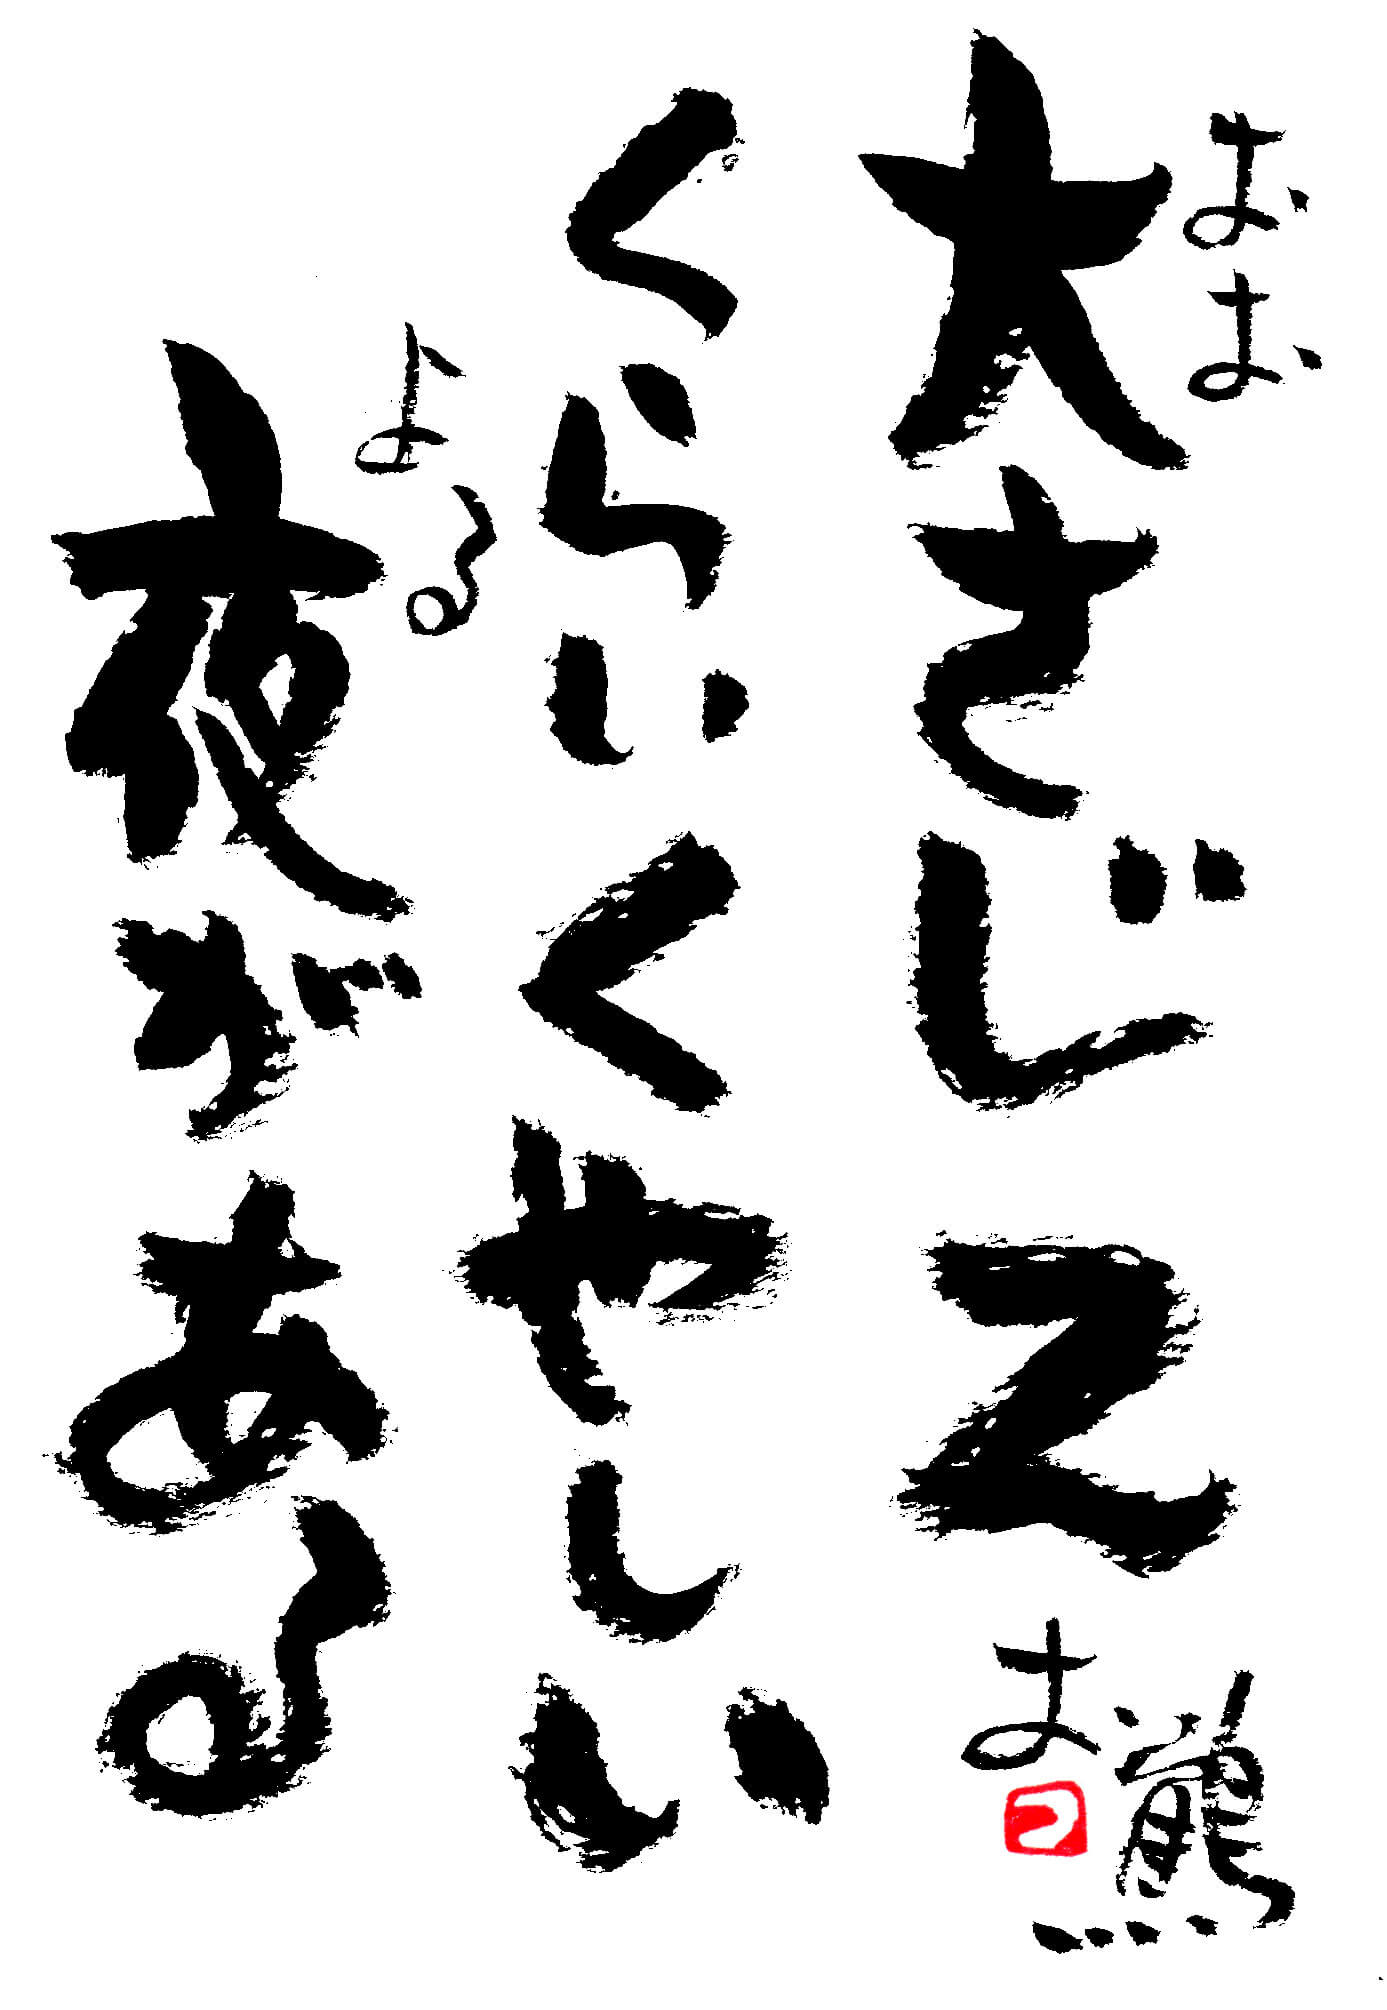 おお
大さじ2
熊
お
くらいくやしい
よる
夜がある